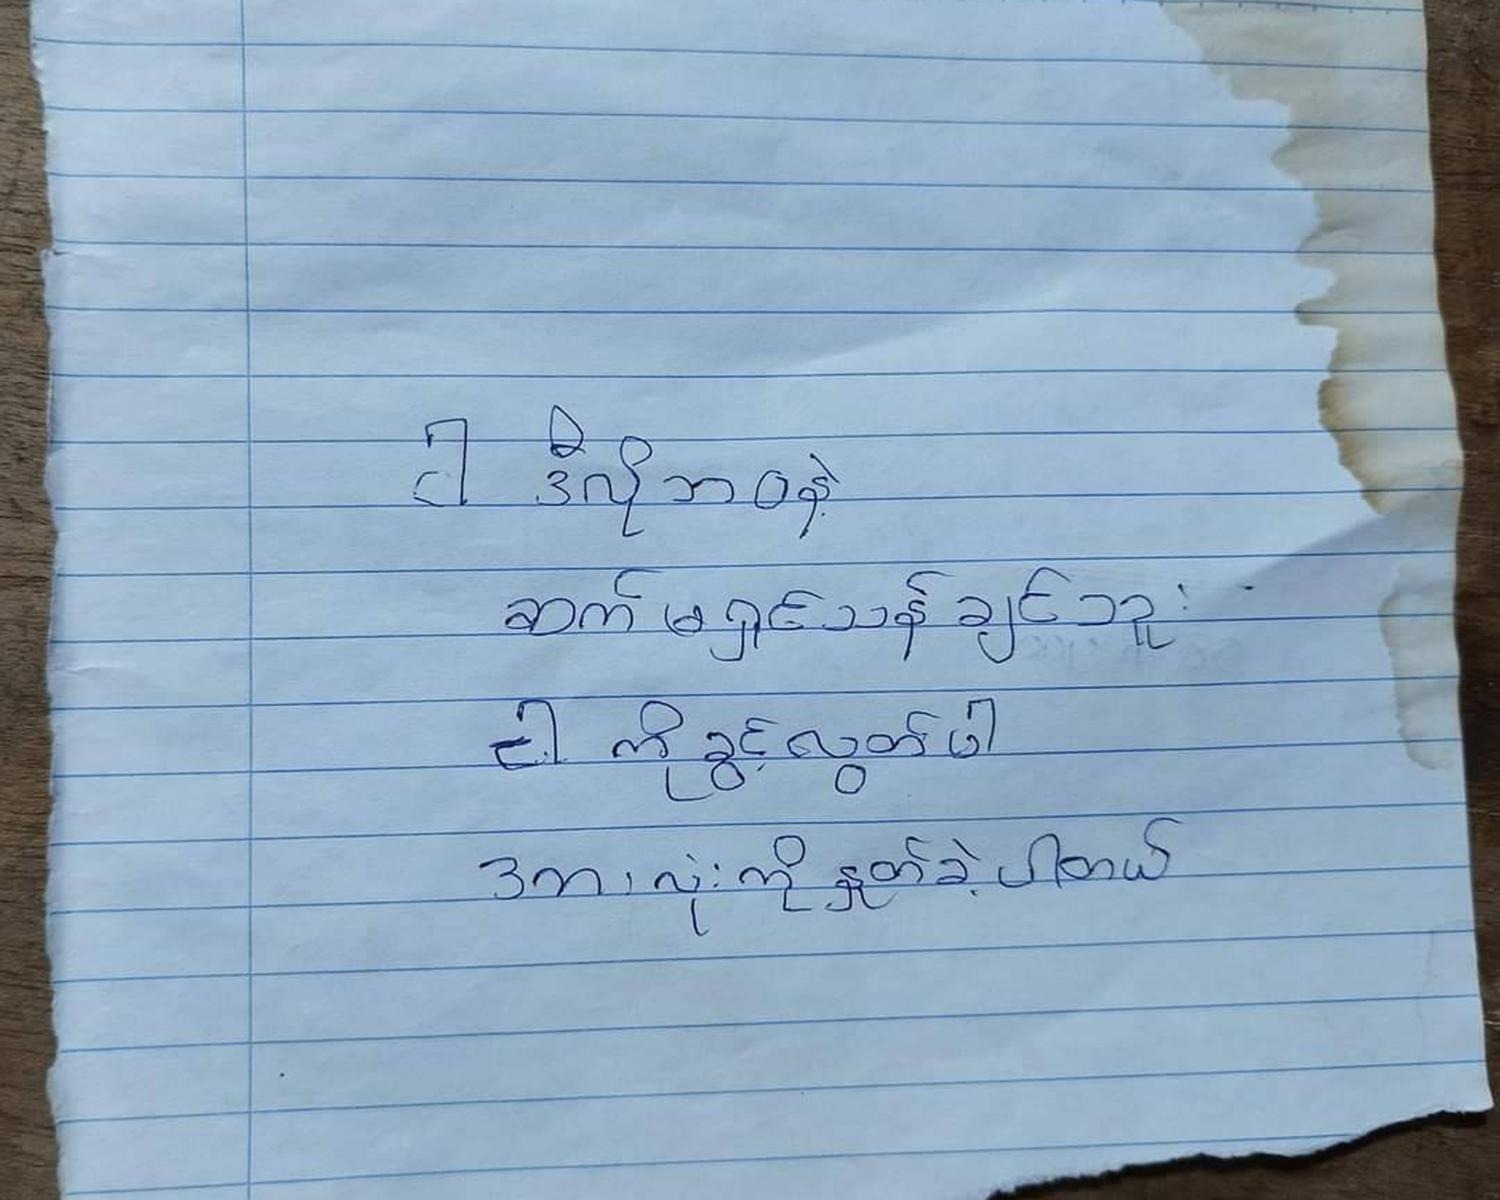 ငါ ဒီလိုဘဝနဲ့
ဆက်မရှင်သန်ချင်ဘူး
ငါ ကိုခွင့်လွှတ်ပါ
အားလုံးကိုနှုတ်ခဲ့ပါတယ်